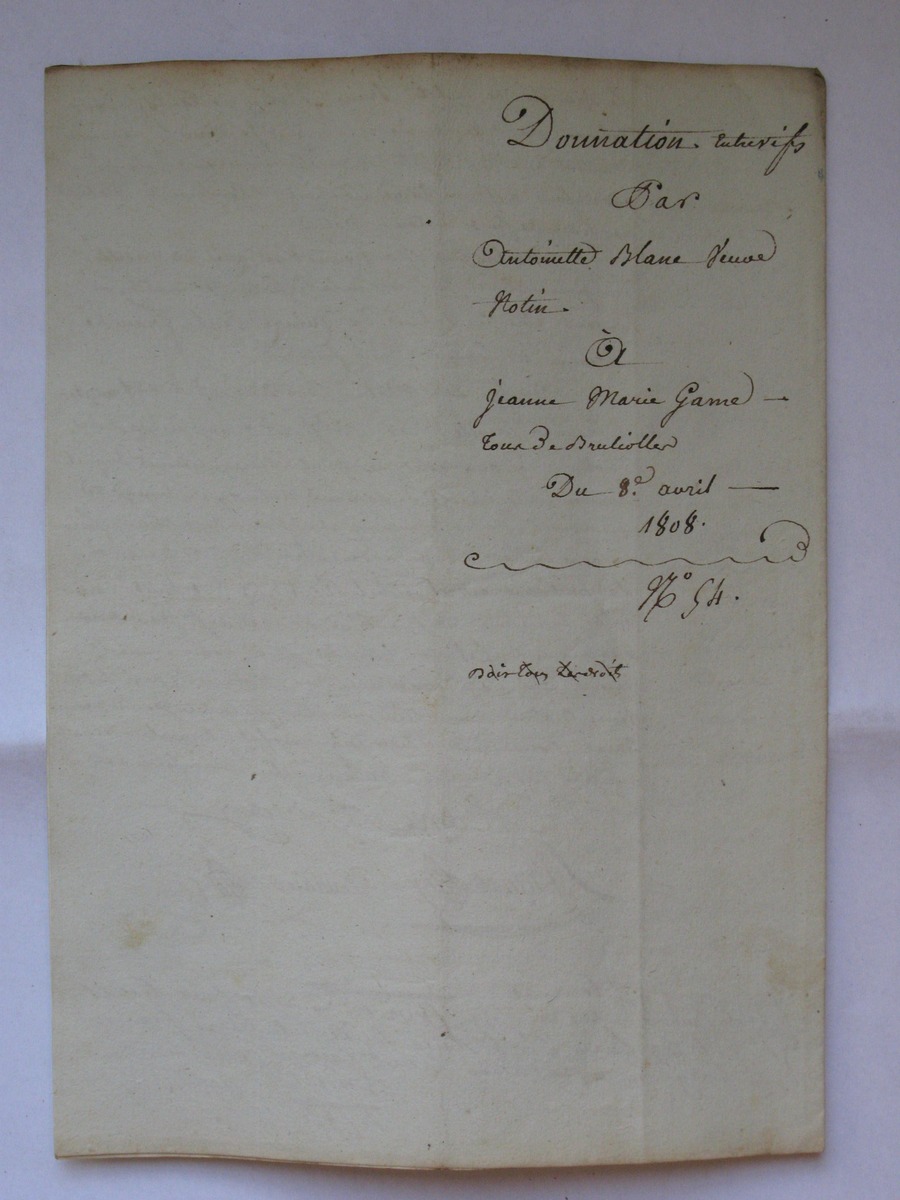 Donnation entrevifs
Par
Antoinette Blanc Veuve
Notin.
À
jeanne Marie Game
tous de Brullioller
Du 8e. avril
1808.
N° 54.